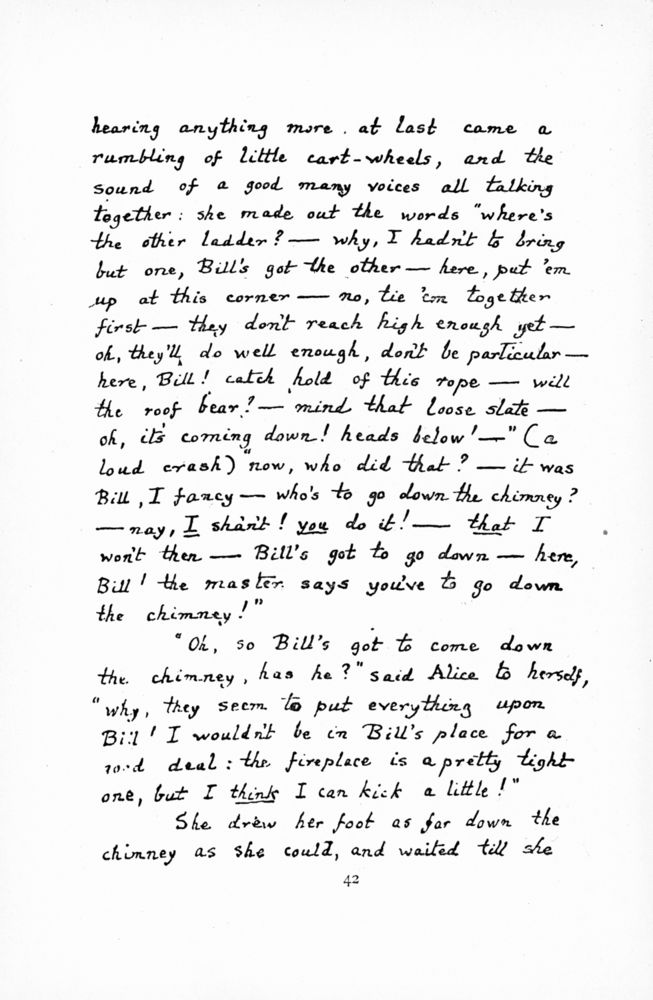 hearing anything more. at last came a
rumbling of little cart-wheels, and the
sound of a good many voices all talking
together: she made out the words "where's
the other ladder? — why, I hadn't to bring
but one, Bill's got the other — here, put 'em
up at this corner — no, tie 'em together
first — they don't reach high enough yet —
oh, they'll do well enough, don't be particular —
here, Bill! catch hold of this rope — will
the roof bear? — mind that loose slate —
oh, it's coming down! heads below! —" (a
loud crash) "now, who did that? — it was
Bill, I fancy — who's to go down the chimney?
— nay, I shan't! you do it! — that I
won't then — Bill's got to go down — here,
Bill! the master says you've to go down
the chimney!"
"Oh, so Bill's got to come down
the chimney, has he?" said Alice to herself,
"why, they seem to put everything upon
Bill! I wouldn't be in Bill's place for a
good deal: the fireplace is a pretty tight
one, but I think I can kick a little!"
She drew her foot as far down the
chimney as she could, and waited till she
42